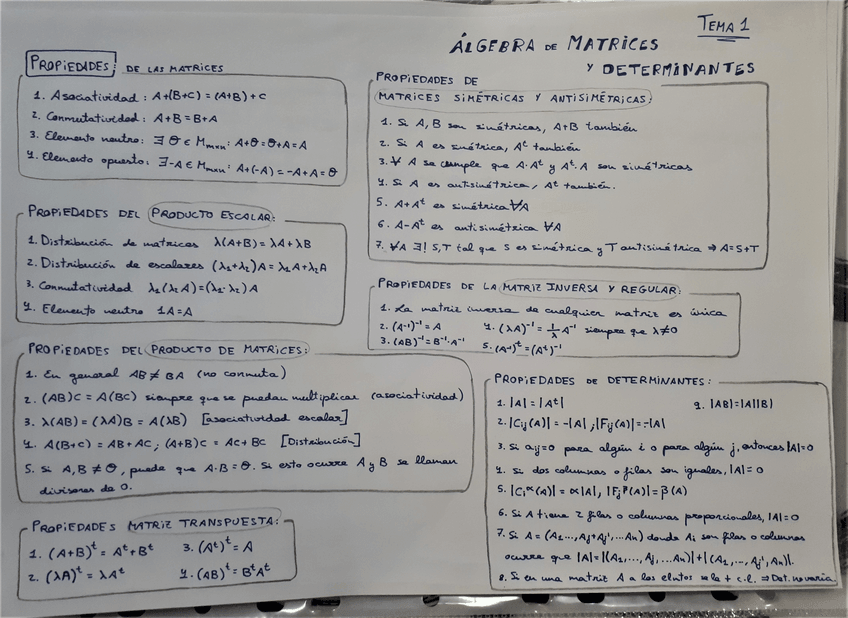 TEMA 1
ÁLGEBRA DE MATRICES
Y DETERMINANTES
PROPIEDADES: DE LAS MATRICES
1. Asociatividad: A+(B+C)=(A+B)+C
2. Conmutatividad: A+B=B+A
3. Elemento neutro: ∃ θ ∈ Mmxn: A+θ=θ+A=A
4. Elemento opuesto: ∃-A ∈ Mmxn: A+(-A)=-A+A=θ
PROPIEDADES DEL PRODUCTO ESCALAR:
1. Distribución de matrices λ(A+B)=λA+λB
2. Distribución de escalares (λ₁+λ₂)A=λ₁A+λ₂A
3. Conmutatividad λ₁(λ₂A)=(λ₁·λ₂)A
4. Elemento neutro 1A=A
PROPIEDADES DEL PRODUCTO DE MATRICES:
1. En general AB≠BA (no conmuta)
2. (AB)C = A(BC) siempre que se puedan multiplicar (asociatividad)
3. λ(AB)=(λA)B=A(λB) [asociatividad escalar]
4. A(B+C)=AB+AC; (A+B)C=AC+BC [Distribución]
5. Si A,B≠θ, puede que A·B=θ. Si esto ocurre A y B se llaman
divisores de 0.
PROPIEDADES MATRIZ TRANSPUESTA:
1. (A+B)ᵗ=Aᵗ+Bᵗ 3. (Aᵗ)ᵗ=A
2. (λA)ᵗ=λAᵗ 4. (AB)ᵗ=BᵗAᵗ
PROPIEDADES DE
MATRICES SIMÉTRICAS Y ANTISIMÉTRICAS:
1. Si A,B son simétricas, A+B también
2. Si A es simétrica, Aᵗ también
3. ∀ A se cumple que A·Aᵗ y Aᵗ·A son simétricas
4. Si A es antisimétrica, Aᵗ también.
5. A+Aᵗ es simétrica ∀A
6. A-Aᵗ es antisimétrica ∀A
7. ∀A ∃! S,T tal que S es simétrica y T antisimétrica ⇒ A=S+T
PROPIEDADES DE LA MATRIZ INVERSA Y REGULAR:
1. La matriz inversa de cualquier matriz es única
2. (A⁻¹)⁻¹=A 4. (λA)⁻¹=1/λ A⁻¹ siempre que λ≠0
3. (AB)⁻¹=B⁻¹·A⁻¹ 5. (A⁻¹)ᵗ=(Aᵗ)⁻¹
PROPIEDADES DE DETERMINANTES:
1. |A|=|Aᵗ| 9. |AB|=|A||B|
2. |Cij(A)|=-|A|; |Fij(A)|=-|A|
3. Si aij=0 para algún i o para algún j, entonces |A|=0
4. Si dos columnas o filas son iguales, |A|=0
5. |Ciᵅ(A)|=α|A|, |Fjᵝ(A)|=β(A)
6. Si A tiene 2 filas o columnas proporcionales, |A|=0
7. Si A=(A1..., Aj+Aj', ...An) donde Ai son filas o columnas
ocurre que |A|=|(A1,..., Aj, ...An)|+|(A1,..., Aj', ...An)|.
8. Si en una matriz A a los elntos se le + c.l. ⇒ Det. no varía.